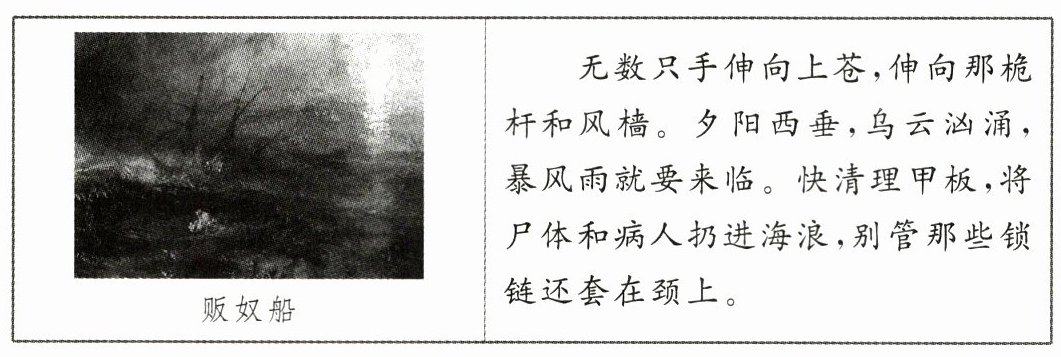 贩奴船
无数只手伸向上苍,伸向那桅
杆和风樯。夕阳西垂,乌云汹涌,
暴风雨就要来临。快清理甲板,将
尸体和病人扔进海浪,别管那些锁
链还套在颈上。